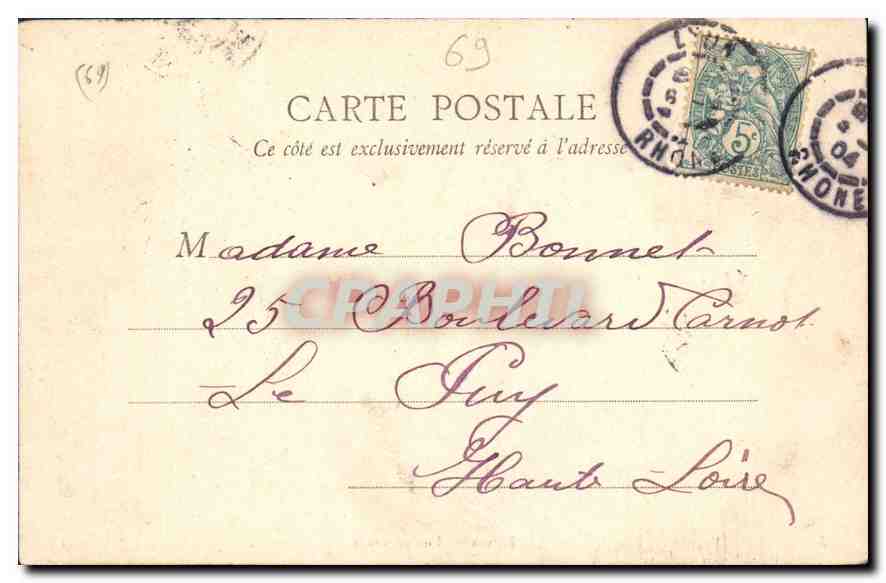 69
(69)
CARTE POSTALE
Ce côté est exclusivement réservé à l'adresse
LYON
RHONE
5c
POSTES
04
RHONE
Madame Bonnet
25 Boulevard Carnot
Le Puy
Haute-Loire
CPAPHIL